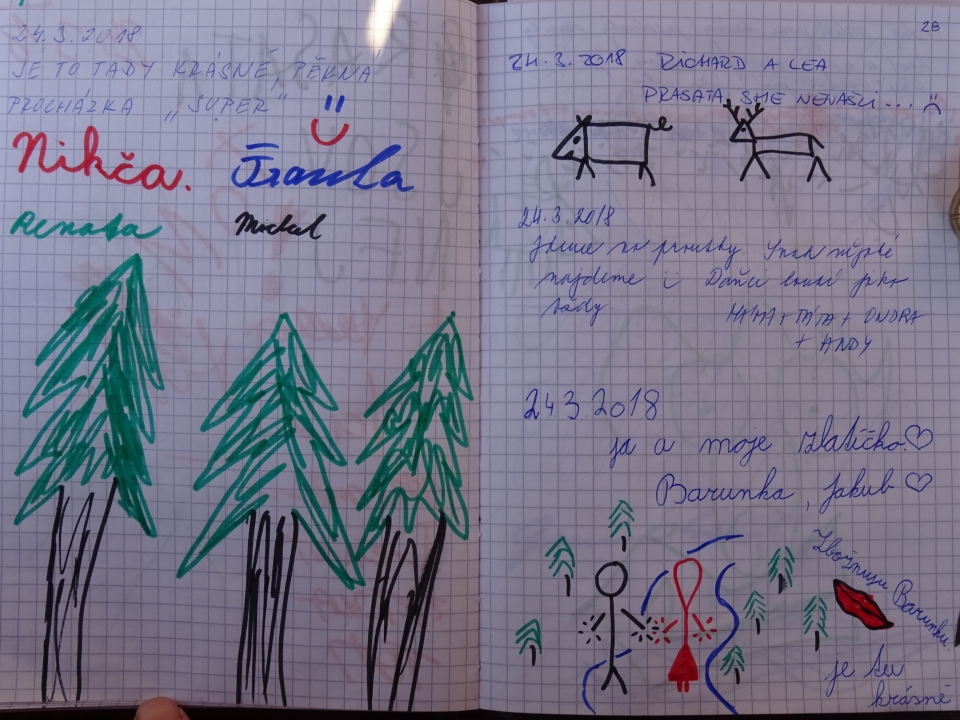 24.3.2018
JE TO TADY KRÁSNÉ, PĚKNÁ
PROCHÁZKA „SUPER"
Nikča.
Renata
Michal
28
24.3.2018 RICHARD A LEA
PRASATA SME NENAŠLI...
24.3.2018
Jdeme na proutky. Snad nějaké
najdeme i Daňci
MÁMA + TÁTA + ONDRA
+ ANDY
24 3 2018
ja a moje zlatíčko. ♡
Barunka, Jakub ♡
Zbožňuju Barunku.
je tu
krásně